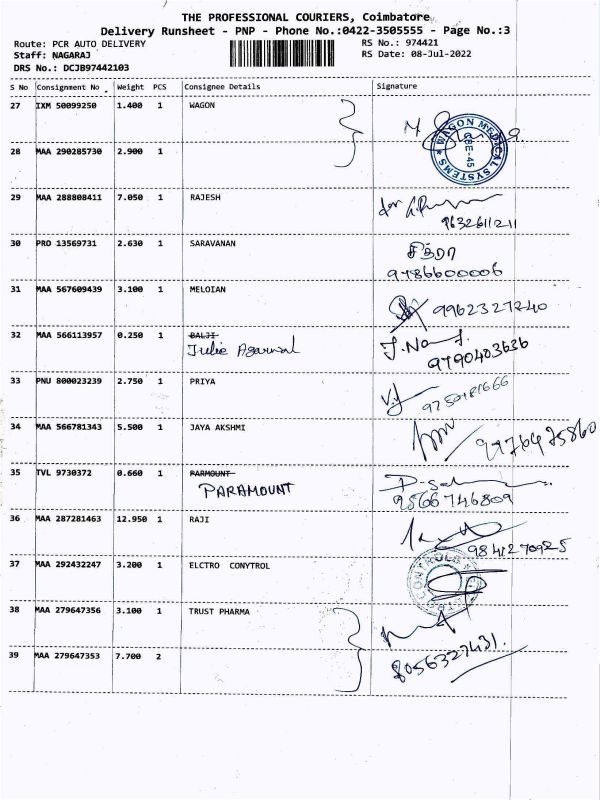 THE PROFESSIONAL COURIERS, Coimbatore
Delivery Runsheet - PNP - Phone No.:0422-3505555 - Page No.:3
Route: PCR AUTO DELIVERY RS No.: 974421
Staff: NAGARAJ RS Date: 08-Jul-2022
DRS No.: DCJB97442103
S No Consignment No Weight PCS Consignee Details Signature
27 IXM 50099250 1.400 1 WAGON
WAGON MEDICAL SYSTEMS CBE-45
28 MAA 290285730 2.900 1
29 MAA 288808411 7.050 1 RAJESH
9632611211
30 PRO 13569731 2.630 1 SARAVANAN சித்ரா
9786600006
31 MAA 567609439 3.100 1 MELOIAN 9962327240
32 MAA 566113957 0.250 1 BALJI
Julie Agarwal 9790403636
33 PNU 800023239 2.750 1 PRIYA
9750181666
34 MAA 566781343 5.500 1 JAYA AKSHMI 9976475860
35 TVL 9730372 0.660 1 PARMOUNT
PARAMOUNT 9566746809
36 MAA 287281463 12.950 1 RAJI
9841270925
37 MAA 292432247 3.200 1 ELCTRO CONYTROL
38 MAA 279647356 3.100 1 TRUST PHARMA
39 MAA 279647353 7.700 2 8056327431.